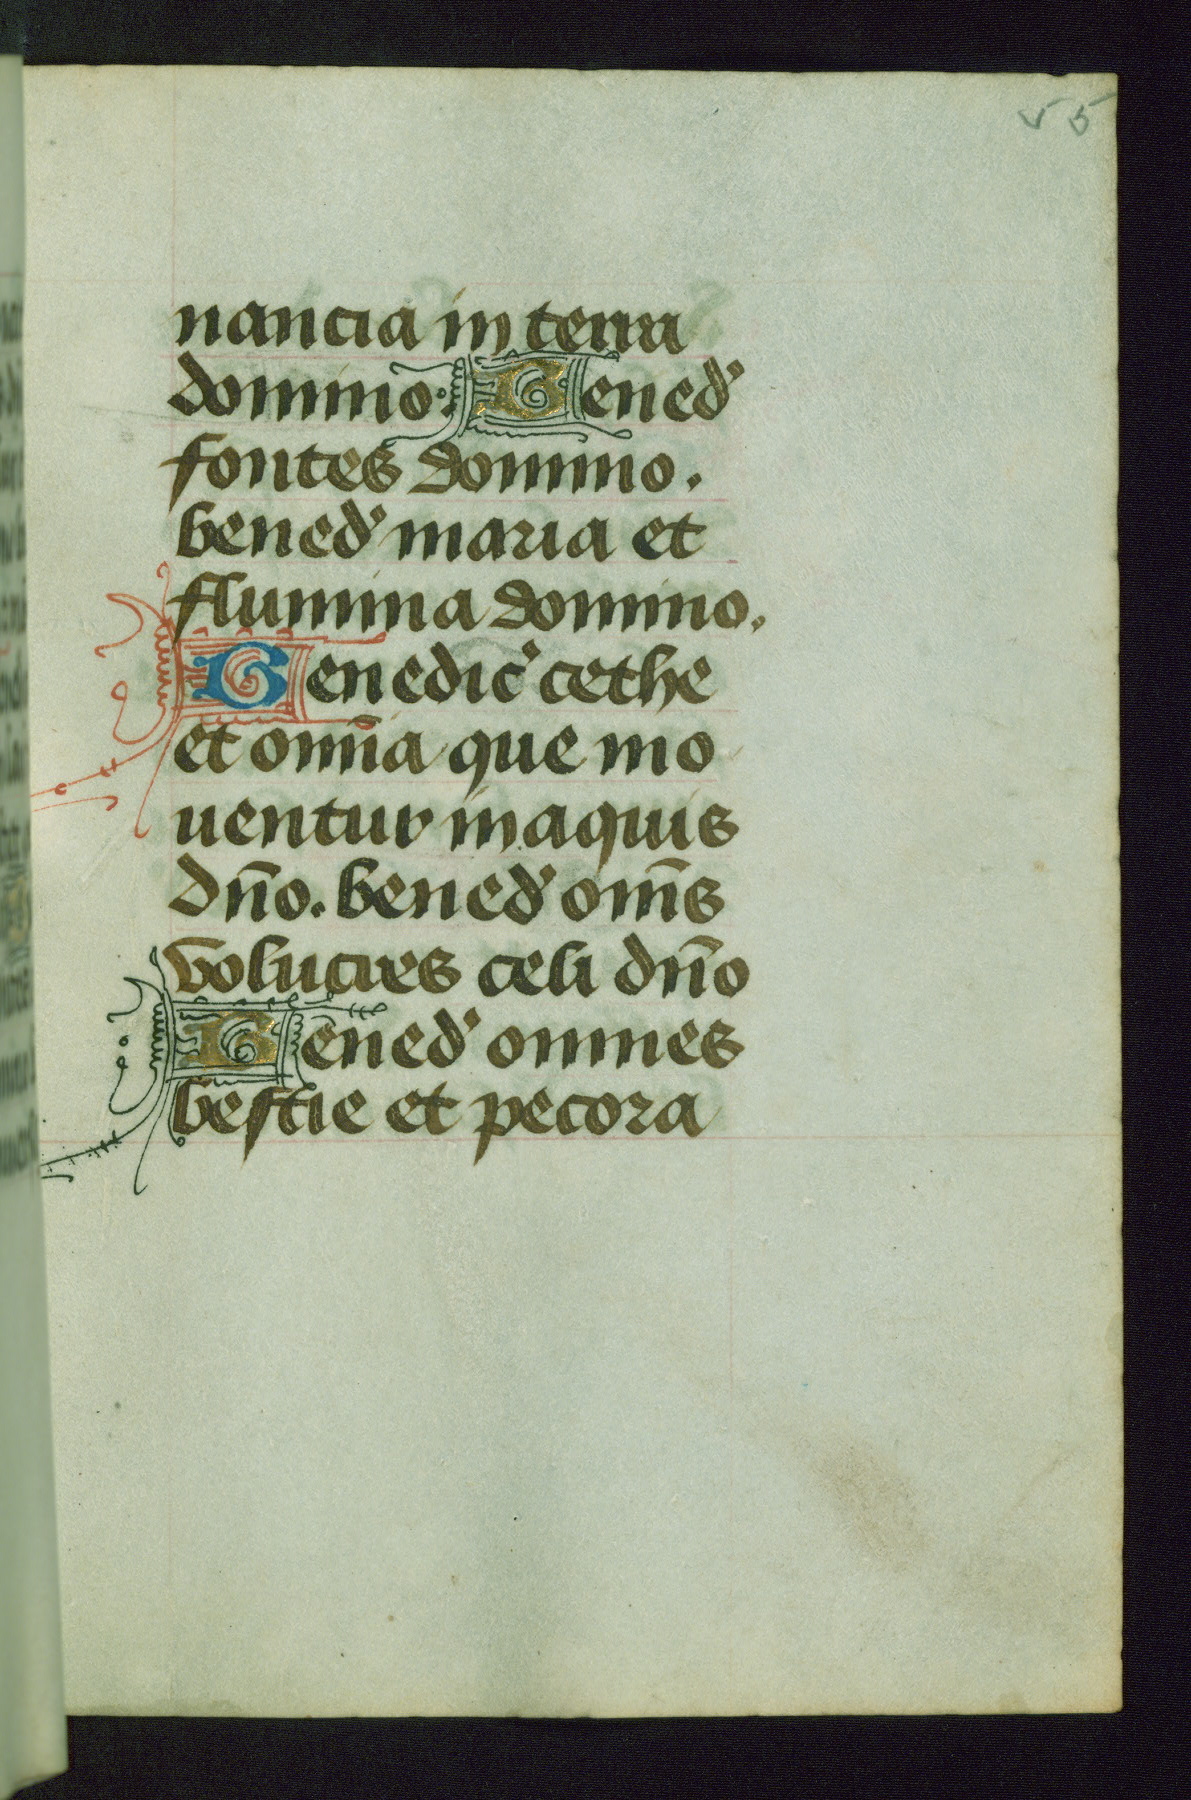 55
nancia in terra
domino: Bened᾽
fontes domino.
bened᾽ maria et
flumina domino.
Benedic᾽ cethe
et om̄ia que mo
uentur in aquis
dn̄o. bened᾽ om̄s
volucres celi dn̄o
Bened᾽ omnes
bestie et pecora